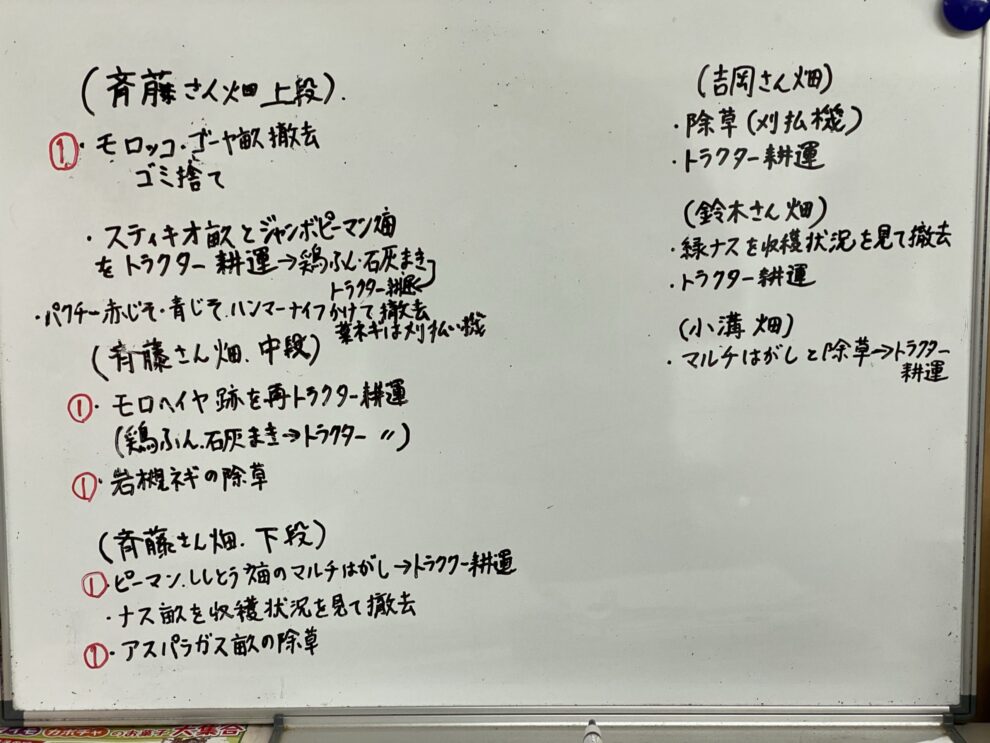 (斉藤さん畑 上段).
①・モロッコ・ゴーヤ畝撤去
ゴミ捨て
・スティキオ畝とジャンボピーマン畑
をトラクター耕運→鶏ふん・石灰まき
トラクター耕運
・パクチー赤じそ・青じそ.ハンマーナイフかけて撤去
葉ネギは刈払い機
(斉藤さん畑.中段)
①・モロヘイヤ跡を再トラクター耕運
(鶏ふん.石灰まき→トラクター 〃)
①・岩槻ネギの除草
(斉藤さん畑.下段)
①・ピーマン.ししとう畑のマルチはがし→トラクター耕運
・ナス畝を収穫状況を見て撤去
①・アスパラガス畝の除草
(吉岡さん畑)
・除草(刈払機)
・トラクター耕運
(鈴木さん畑)
・緑ナスを収穫状況を見て撤去
・トラクター耕運
(小溝畑)
・マルチはがしと除草→トラクター
耕運
カボチャのお菓子大集合